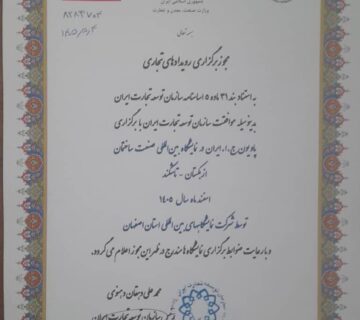 جمهوری اسلامی ایران
وزارت صنعت، معدن و تجارت
بسمه تعالی
مجوز برگزاری رویدادهای تجاری
به استناد بند ۳۱ ماده ۵ اساسنامه سازمان توسعه تجارت ایران
بدینوسیله موافقت سازمان توسعه تجارت ایران با برگزاری
پاویون ج.ا.ایران در نمایشگاه بین المللی صنعت ساختمان
ازبکستان - تاشکند
اسفند ماه سال ۱۴۰۵
توسط شرکت نمایشگاههای بین المللی استان اصفهان
و با رعایت ضوابط برگزاری نمایشگاه ها مندرج در ظهر این مجوز اعلام می گردد.
محمد علی دهقان دهنوی
سازمان توسعه تجارت ایران